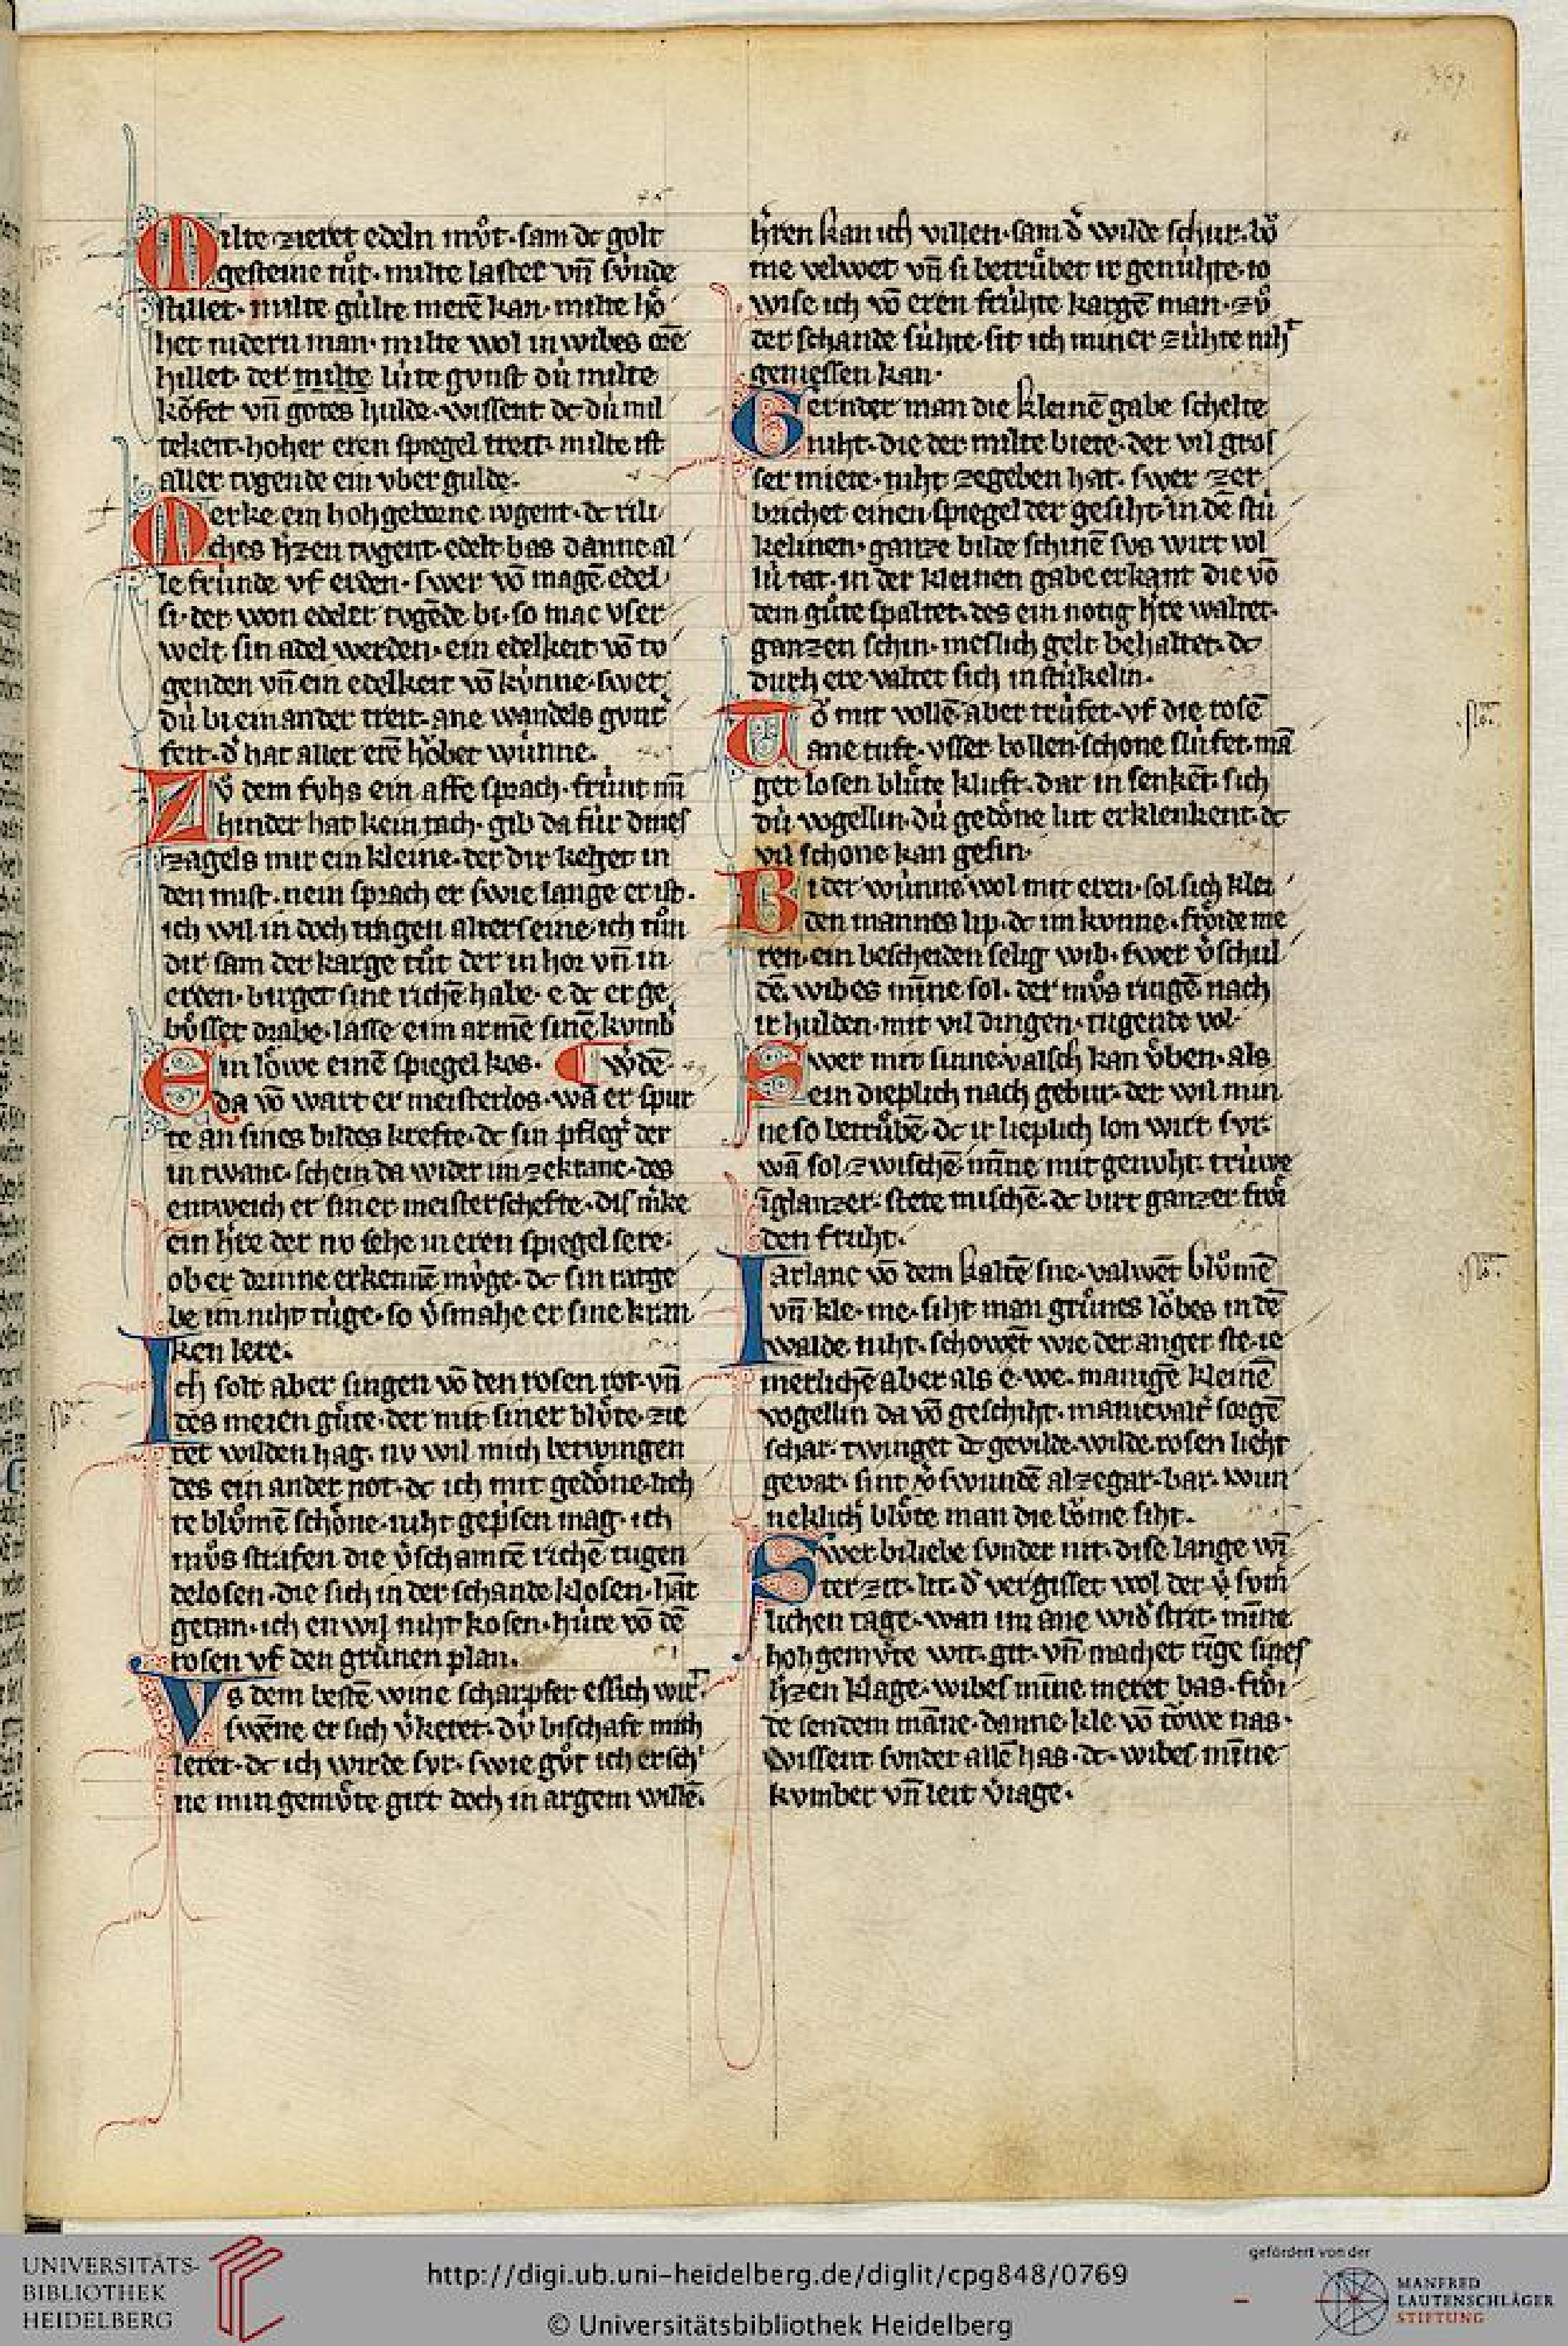 Milte zieret edeln můt · sam dc golt
gesteine tůt · milte laster vn̄ sv́nde
stillet · milte gúlte merē kan · milte hȯ
het nidern man · milte wol in wibes orē
hillet · der milte lúte gvnst dú milte
kȯfet vn̄ gotes hulde · wissent dc dú mil
tekeit · hoher eren spiegel treit · milte ist
aller tvgende ein vber gulde ·
Merke ein hohgeborne ivgent · dc rili
ches h̾zen tvgent · edelt bas danne al
le frúnde vf erden · swer vō magē edel
si · der won edeler tvgēde bi · so mac vser
welt sin adel werden · ein edelkeit vō tv
genden vn̄ ein edelkeit vō kúnne · swer
dú bi einander treit · ane wandels gvnt̾
feit · d̾ hat aller erē hȯbet wunne ·
Zů dem fvhs ein affe sprach · frúnt mī
hinder hat kein tach · gib da fúr dines
zagels mir ein kleine · der dir kehet in
den mist · nein sprach er swie lange er ist ·
ich wil in doch tragen alterseine · ich tůn
dir sam der karge tůt der in hor vn̄ in
erden · birget sine richē habe · e dc er ge
bȯsset drabe · lasse eim armē sinē kvmb̾
Ein lȯwe einē spiegel kos · ¶ w̾dē ·
da vō wart er meisterlos · wā er spur
te an sines bildes krefte · dc sin pfleg̾ der
in twanc · schein da wider im ze kranc · des
entweich er siner meisterschefte · dis m̾ke
ein h̾re der nv sehe in eren spiegel sere ·
ob er drinne erkennē mvge · dc sin ratge
be im niht túge · so v̾smahe er sine kran
ken lere ·
Ich solt aber singen vō den rosen rot · vn̄
des meien gůte · der mit siner blůte · zie
ret wilden hag · nv wil mich betwingen
des ein ander not · dc ich mit gedȯne · lieh
te blůmē schȯne · niht gep̾sen mag · ich
můs strafen die v̾schamtē richē tugen
delosen · die sich in der schande klosen · hāt
getan · ich en wil niht kosen · húre vō dē
rosen vf den grůnen plan ·
Vs dem bestē wine scharpfer essich wirt ·
swēne er sich v̾keret · dv́ bischaft mich
leret · dc ich wirde svr · swie gůt ich ersch̾
ne min gemůte girt doch in argem willē ·
h̾ren kan ich villen · sam d̾ wilde schur · bȯ
me velwet vn̄ si betrůbet ir genúhte · so
wise ich vō eren frúhte kargē man · zů
der schande súhte · sit ich miner zúhte niht
geniessen kan ·
Gernder man die kleinē gabe schelte
niht · die der milte biete · der vil gros
ser miete · niht ze geben hat · swer zer
brichet einen spiegel der gesiht · in dē stú
kelinen · ganze bilde schinē svs wirt vol
lú tat · in der kleinen gabe erkant die vō
dem gůte spaltet · des ein notig h̾re waltet ·
ganzen schin · meslich gelt behaltet · dc
durh ere valtet sich in stúkelin ·
Tȯ mit vollē aber trúfet · vf die rosē
ane tuft · vsser bollen schone slúfet · mā
ger losen blůte kluft · dar in senkēt · sich
dú vogellin · dú gedȯne lut erklenkent · dc
vil schone kan gesin ·
Bi der wúnne wol mit eren · sol sich klei
den mannes lip · dc im kvnne · frȯide me
ren · ein bescheiden selig wib · swer v̾schul
dē · wibes mīne sol · der můs ringē · nach
ir hulden · mit vil dingen · tugende vol ·
Swer mit sinne valsch kan v́ben · als
ein dieplich nachgebur · der wil min
ne so betrůbē · dc ir lieplich lon wirt svr ·
wā sol zwischē mīne mit genuht · trúwe
īglanzer · stete mischē · dc birt ganzer frȯi
den fruht ·
Iarlanc vō dem kaltē sne · valwēt blůmē
vn̄ kle · me · siht man grůnes lȯbes in dē
walde niht · schowēt wie der anger ste · ie
merlichē aber als e · we · manigē kleinē
vogellin da vō geschiht · manicvalt̾ sorgē
schar · twinget dc gevilde · wilde rosen lieht
gevar · sint v̾swundē al ze gar · bar · wun
neklich̾ blůte man die bȯme siht ·
Swer bi liebe svnder nit · dise lange wī
ter zit · lit · d̾ vergisset wol der v̾ svm̄
lichen tage · wan im ane wid̾ strit · mīne
hohgemůte wit · git · vn̄ machet rīge sines
h̾zen klage · wibes mīne meret bas · frȯi
de sendem māne · danne kle vō tȯwe nas ·
wissent svnder allē has · dc · wibes mīne
kvmber vn̄ leit v̾iage ·
UNIVERSITÄTS-
BIBLIOTHEK
HEIDELBERG
http://digi.ub.uni-heidelberg.de/diglit/cpg848/0769
© Universitätsbibliothek Heidelberg
gefördert von der
MANFRED
LAUTENSCHLÄGER
STIFTUNG